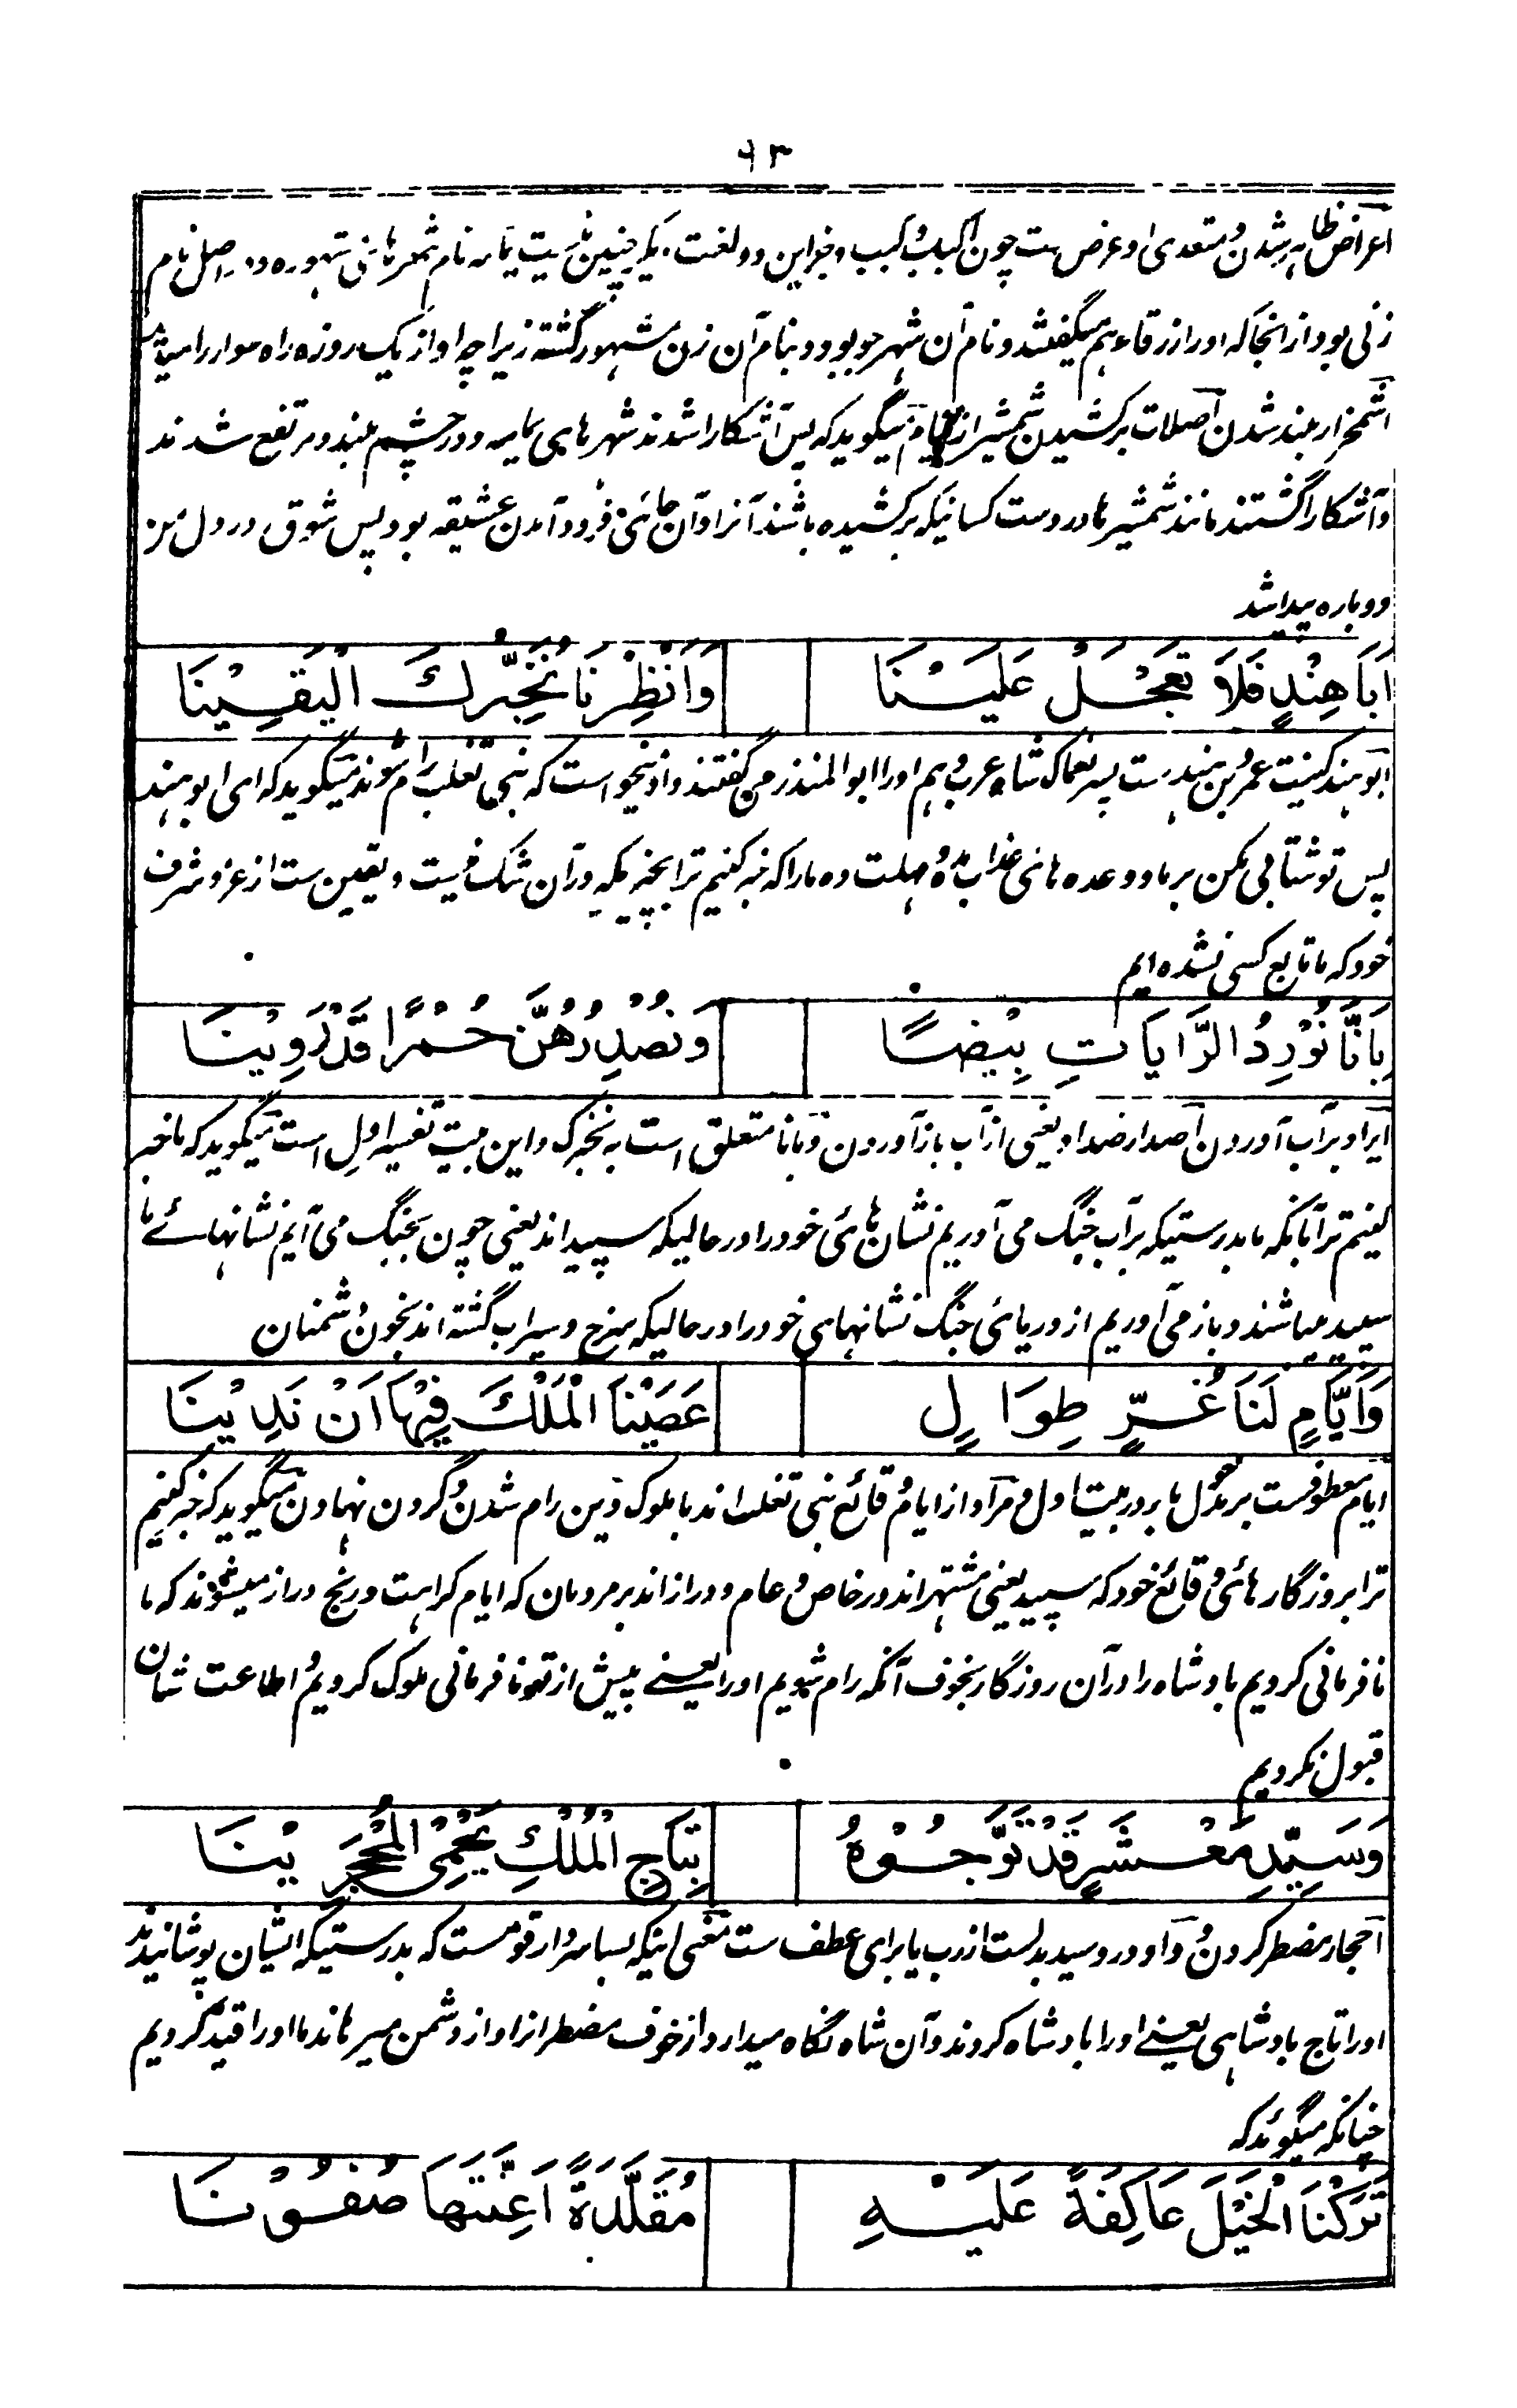 ٦٣
اعراض ظاہر شدن و متعدی او عرض ست چون اکباب و کب و جز این دو لغت دیگر چنین نیست یمامه نام شهر هائی مشهوره و در اصل نام
زنی بود از انجا که او را زرقاء هم میگفتند و نام آن شهر جو بود و بنام آن زن مشهور گشته زیرا چه او از یک روزه راه سوار را میشناخت
اشمخرار بلند شدن اصلات برکشیدن شمشیر از نیام میگوید که پس آشکارا شدند شهر های یمامه و در چشم بلند و مرتفع شدند
و آشکارا گشتند مانند شمشیر ها در دست کسانیکه برکشیده باشند آنرا و آن جائی فرود آمدن عشیقه بود پس شوق در دل من
دوباره پیدا شد
اَبَا هِنْدٍ فَلَا تَعْجَلْ عَلَیْنَا وَاَنْظِرْنَا نُخَبِّرْكَ الْیَقِیْنَا
ابو هند کنیت عمرو بن هند ست پسر نعمان شاه عرب و هم او را ابو المنذر می گفتند و او نیخواست که بنی تغلب رام شوند میگوید که ای ابو هند
پس تو شتابی مکن بر ما و وعده هائی عذاب مده و مهلت ده ما را که خبر کنیم ترا بخبریکه در آن شک نیست و یقین ست از عز و شرف
خود که ما تابع کسی نشده ایم
بِاَنَّا نُوْرِدُ الرَّایَاتِ بِیْضًا وَنُصْدِرُهُنَّ حُمْرًا قَدْ رَوِیْنَا
ایراد بر آب آوردن اصدار ضد او یعنی از آب باز آوردن و بانا متعلق است به نخبرک و این بیت تفسیر اول است میگوید که ما خبر
کنیم ترا بانکه ما بدرستیکه بر آب جنگ می آوریم نشان هائی خود را در حالیکه سپید اند یعنی چون بجنگ می آیم نشانهائے ما
سپید میباشند و باز می آوریم از دریائی جنگ نشانهای خود را در حالیکه سرخ و سیراب گشته اند بخون دشمنان
وَاَیَّامٍ لَنَا غُرٍّ طِوَالٍ عَصَیْنَا الْمَلْكَ فِیْهَا اَنْ نَدِیْنَا
ایام معطوفست بر مدخول با در بیت اول و مراد از ایام وقائع بنی تغلب اند با ملوک دین رام شدن و گردن نهادن میگوید که خبر کنیم
ترا بروزگار هائی وقائع خود که سپید یعنی مشتهر اند در خاص و عام و دراز اند بر مردمان که ایام کراهت و رنج دراز میشوند که ما
نافرمانی کردیم بادشاه را در آن روزگار بخوف آنکه رام شویم او را یعنے پیش از تو نافرمانی ملوک کردیم و اطاعت شان
قبول نکردیم
وَسَیِّدِ مَعْشَرٍ قَدْ تَوَّجُوْهُ بِتَاجِ الْمُلْكِ یَحْمِی الْمُحْجَرِیْنَا
احجار مضطر کردن و واو در و سید بدلست از رب یا برای عطف ست معنی اینکه بسا سردار قومست که بدرستیکه ایشان پوشانیدند
او را تاج بادشاهی یعنے او را بادشاه کردند و آن شاه نگاه میدارد از خوف مضطر انرا و از دشمن میرهاند ما او را قید کردیم
چنانکه میگوئد که
تَرَکْنَا الْخَیْلَ عَاکِفَةً عَلَیْهِ مُقَلَّدَةً اَعِنَّتَهَا صُفُوْنَا